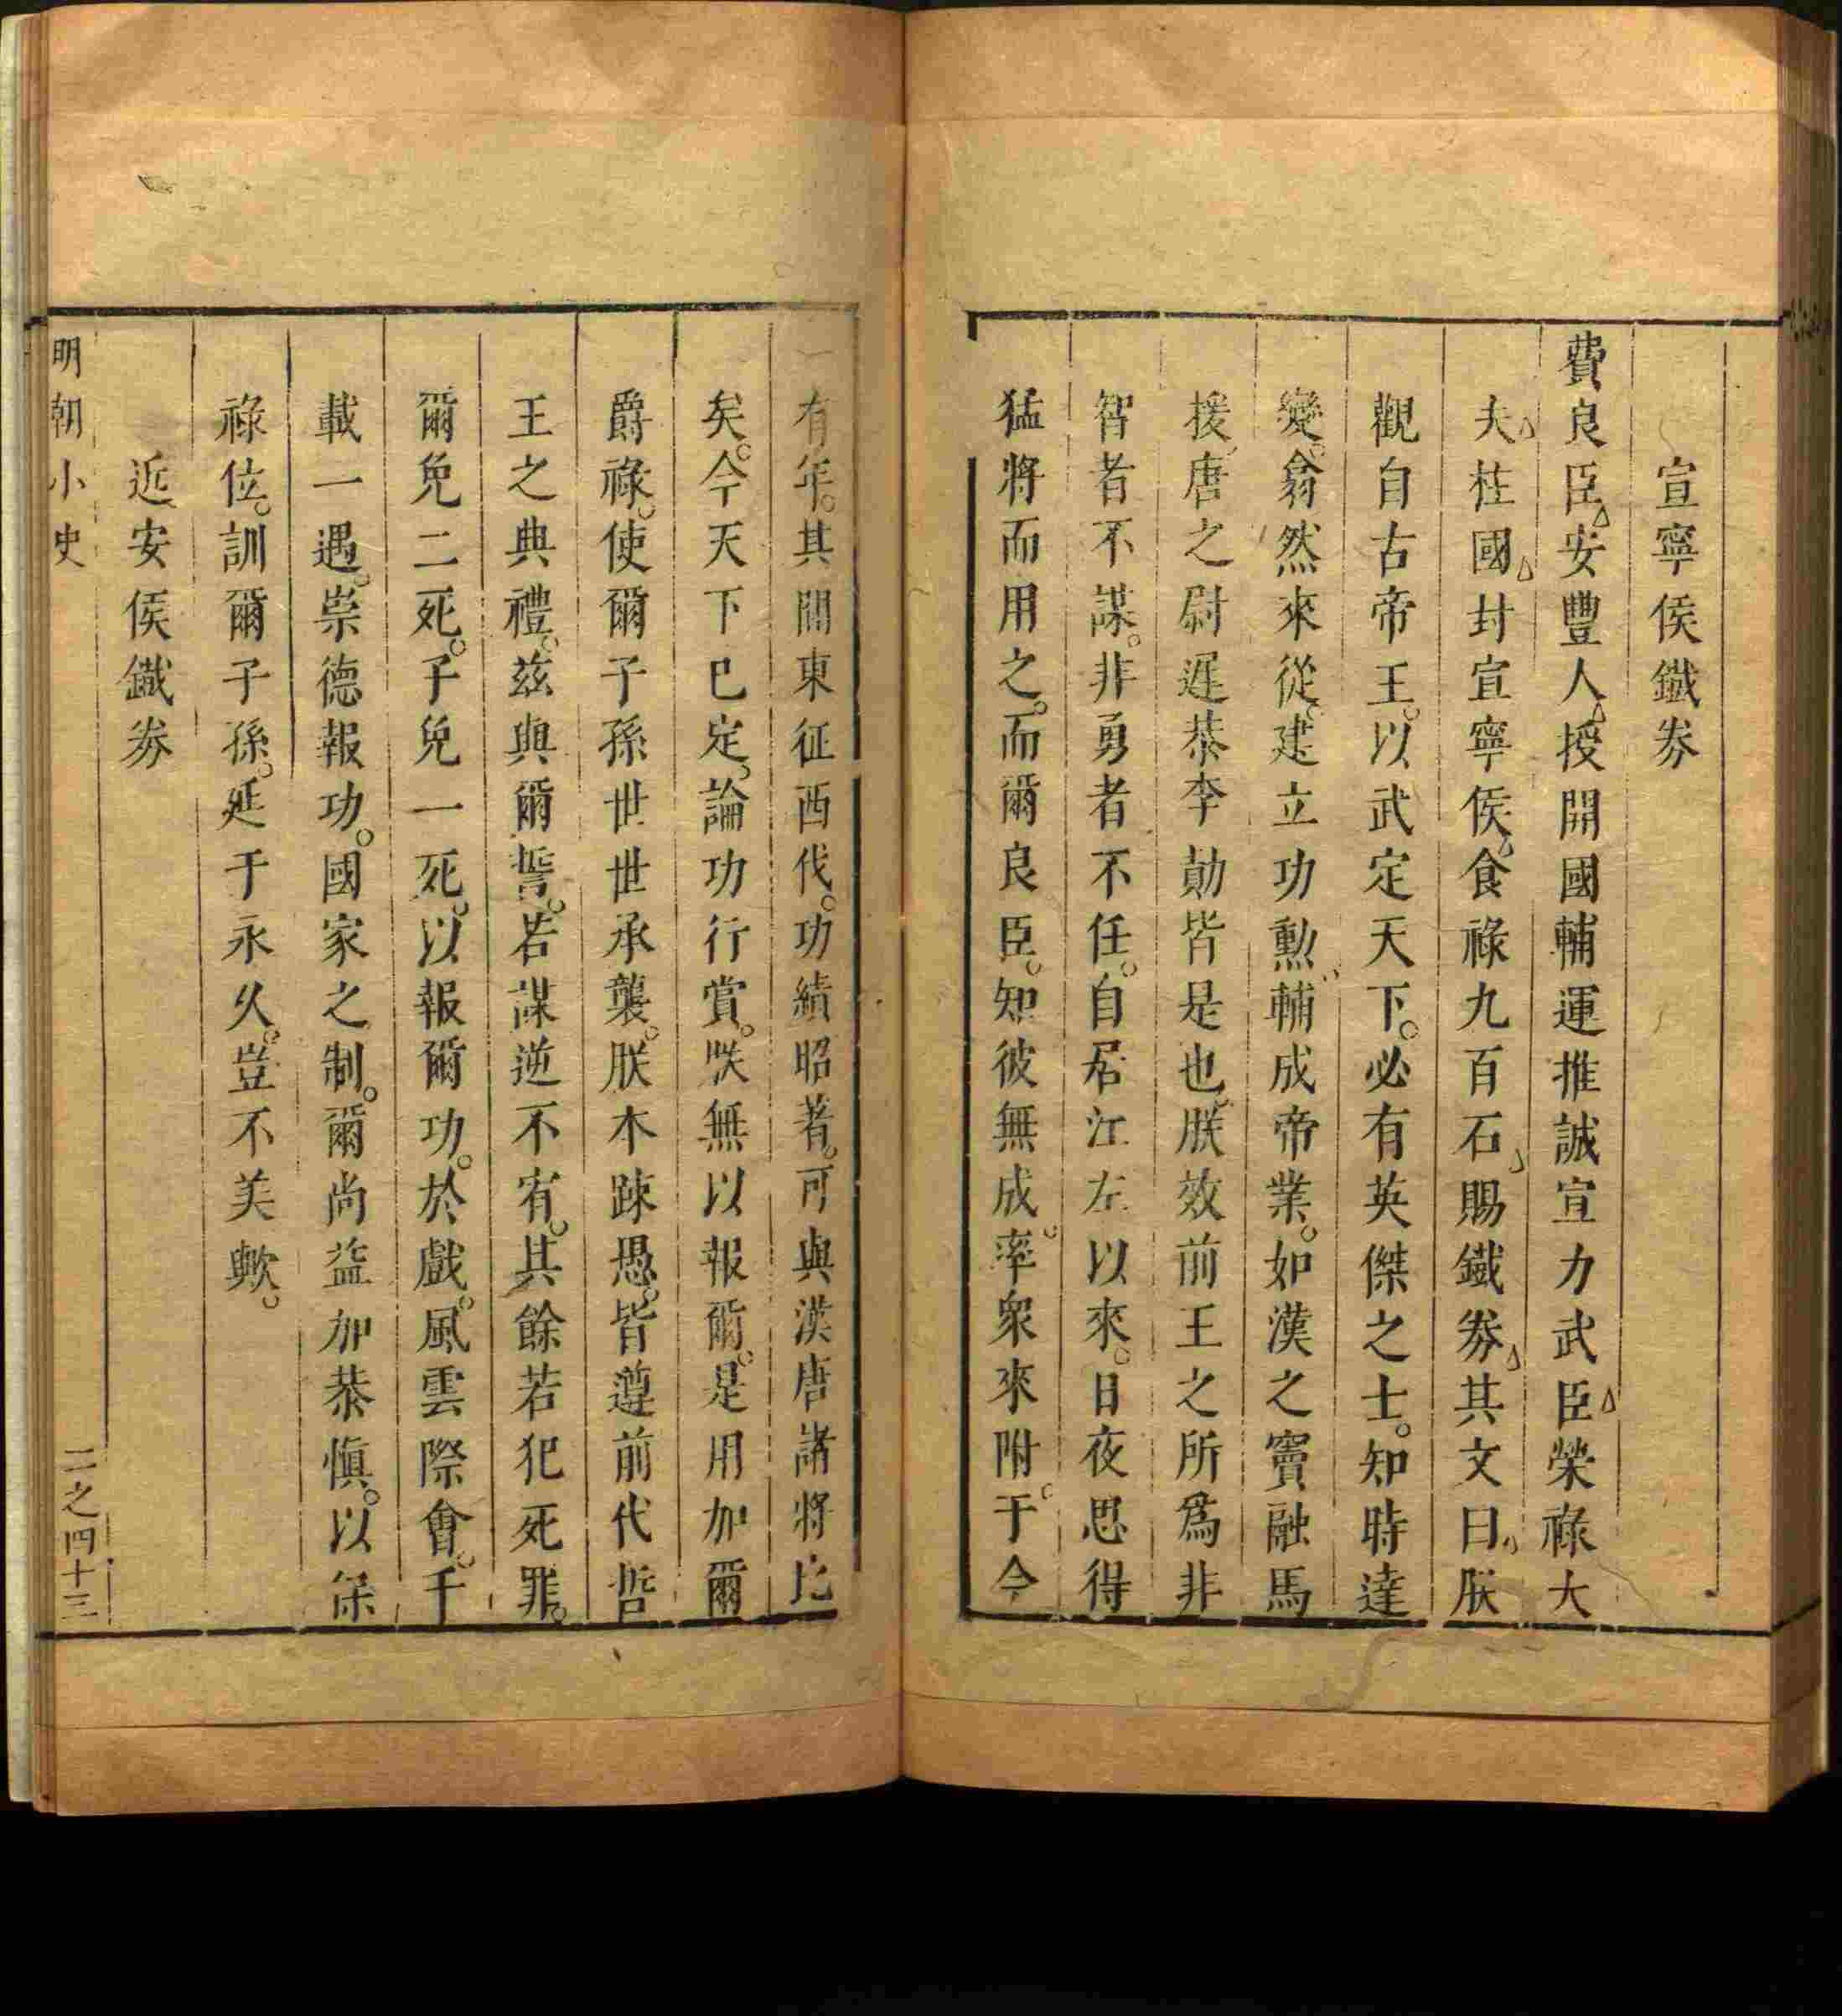 宣寧侯鐵券
費良臣安豐人授開國輔運推誠宣力武臣榮祿大
夫柱國封宣寧侯食祿九百石賜鐵券其文曰朕
觀自古帝王。以武定天下。必有英傑之士。知時達
變。翕然來從。建立功勲。輔成帝業。如漢之竇融馬
援。唐之尉遲恭李勣皆是也。朕效前王之所爲非
智者不謀。非勇者不任。自居江左以來。日夜思得
猛將而用之。而爾良臣。知彼無成。率衆來附。于今
有年。其間東征西伐。功績昭著。可與漢唐諸將比
矣。今天下已定。論功行賞。朕無以報爾。是用加爾
爵祿。使爾子孫世世承襲。朕本踈愚。皆遵前代哲
王之典禮。茲與爾誓。若謀逆不宥。其餘若犯死罪。
爾免二死。子免一死。以報爾功。於戲。風雲際會。千
載一遇。崇德報功。國家之制。爾尚益加恭慎。以保
祿位。訓爾子孫。延于永久。豈不美歟。
近安侯鐵券
明朝小史
二之四十三